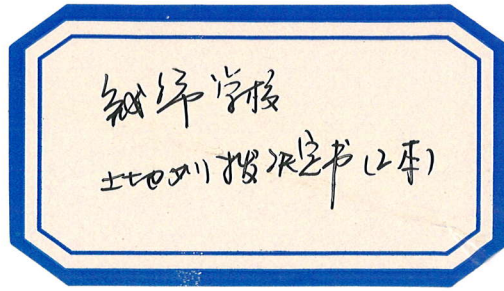 学校
土地划拨决定书(2本)